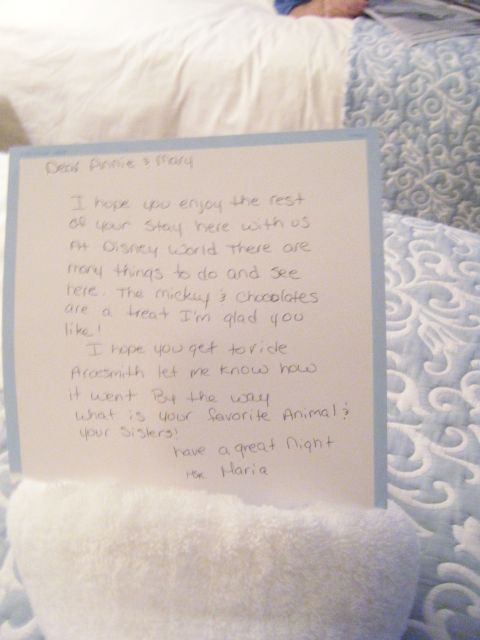 Dear Annie & Mary
I hope you enjoy the rest
of your stay here with us
At Disney World There are
many things to do and see
here. The mickey & chocolates
are a treat I'm glad you
like!
I hope you get to ride
Aroesmith let me know how
it went By the way
what is your favorite Animal &
your Sisters!
have a great Night
Maria